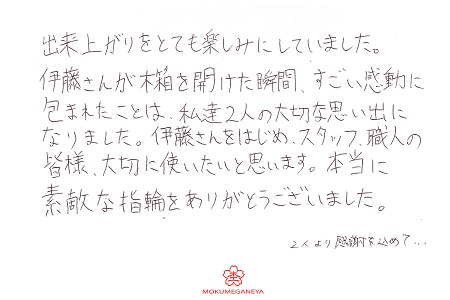 出来上がりをとても楽しみにしていました。
伊藤さんが木箱を開けた瞬間、すごい感動に
包まれたことは、私達2人の大切な思い出に
なりました。伊藤さんをはじめ、スタッフ、職人の
皆様、大切に使いたいと思います。本当に
素敵な指輪をありがとうございました。
2人より感謝を込めて...
MOKUMEGANEYA